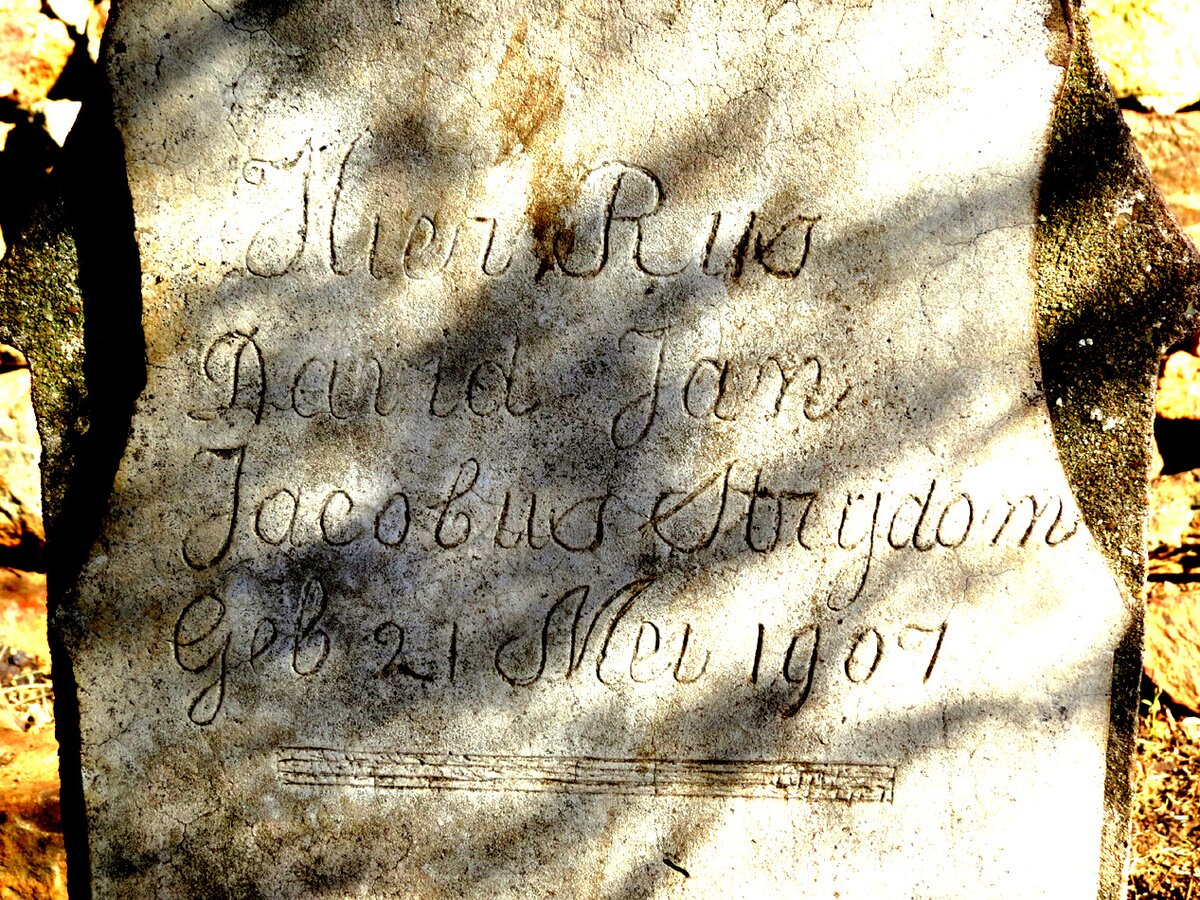 Hier Rus
David Jan
Jacobus Strydom
Geb 21 Mei 1907